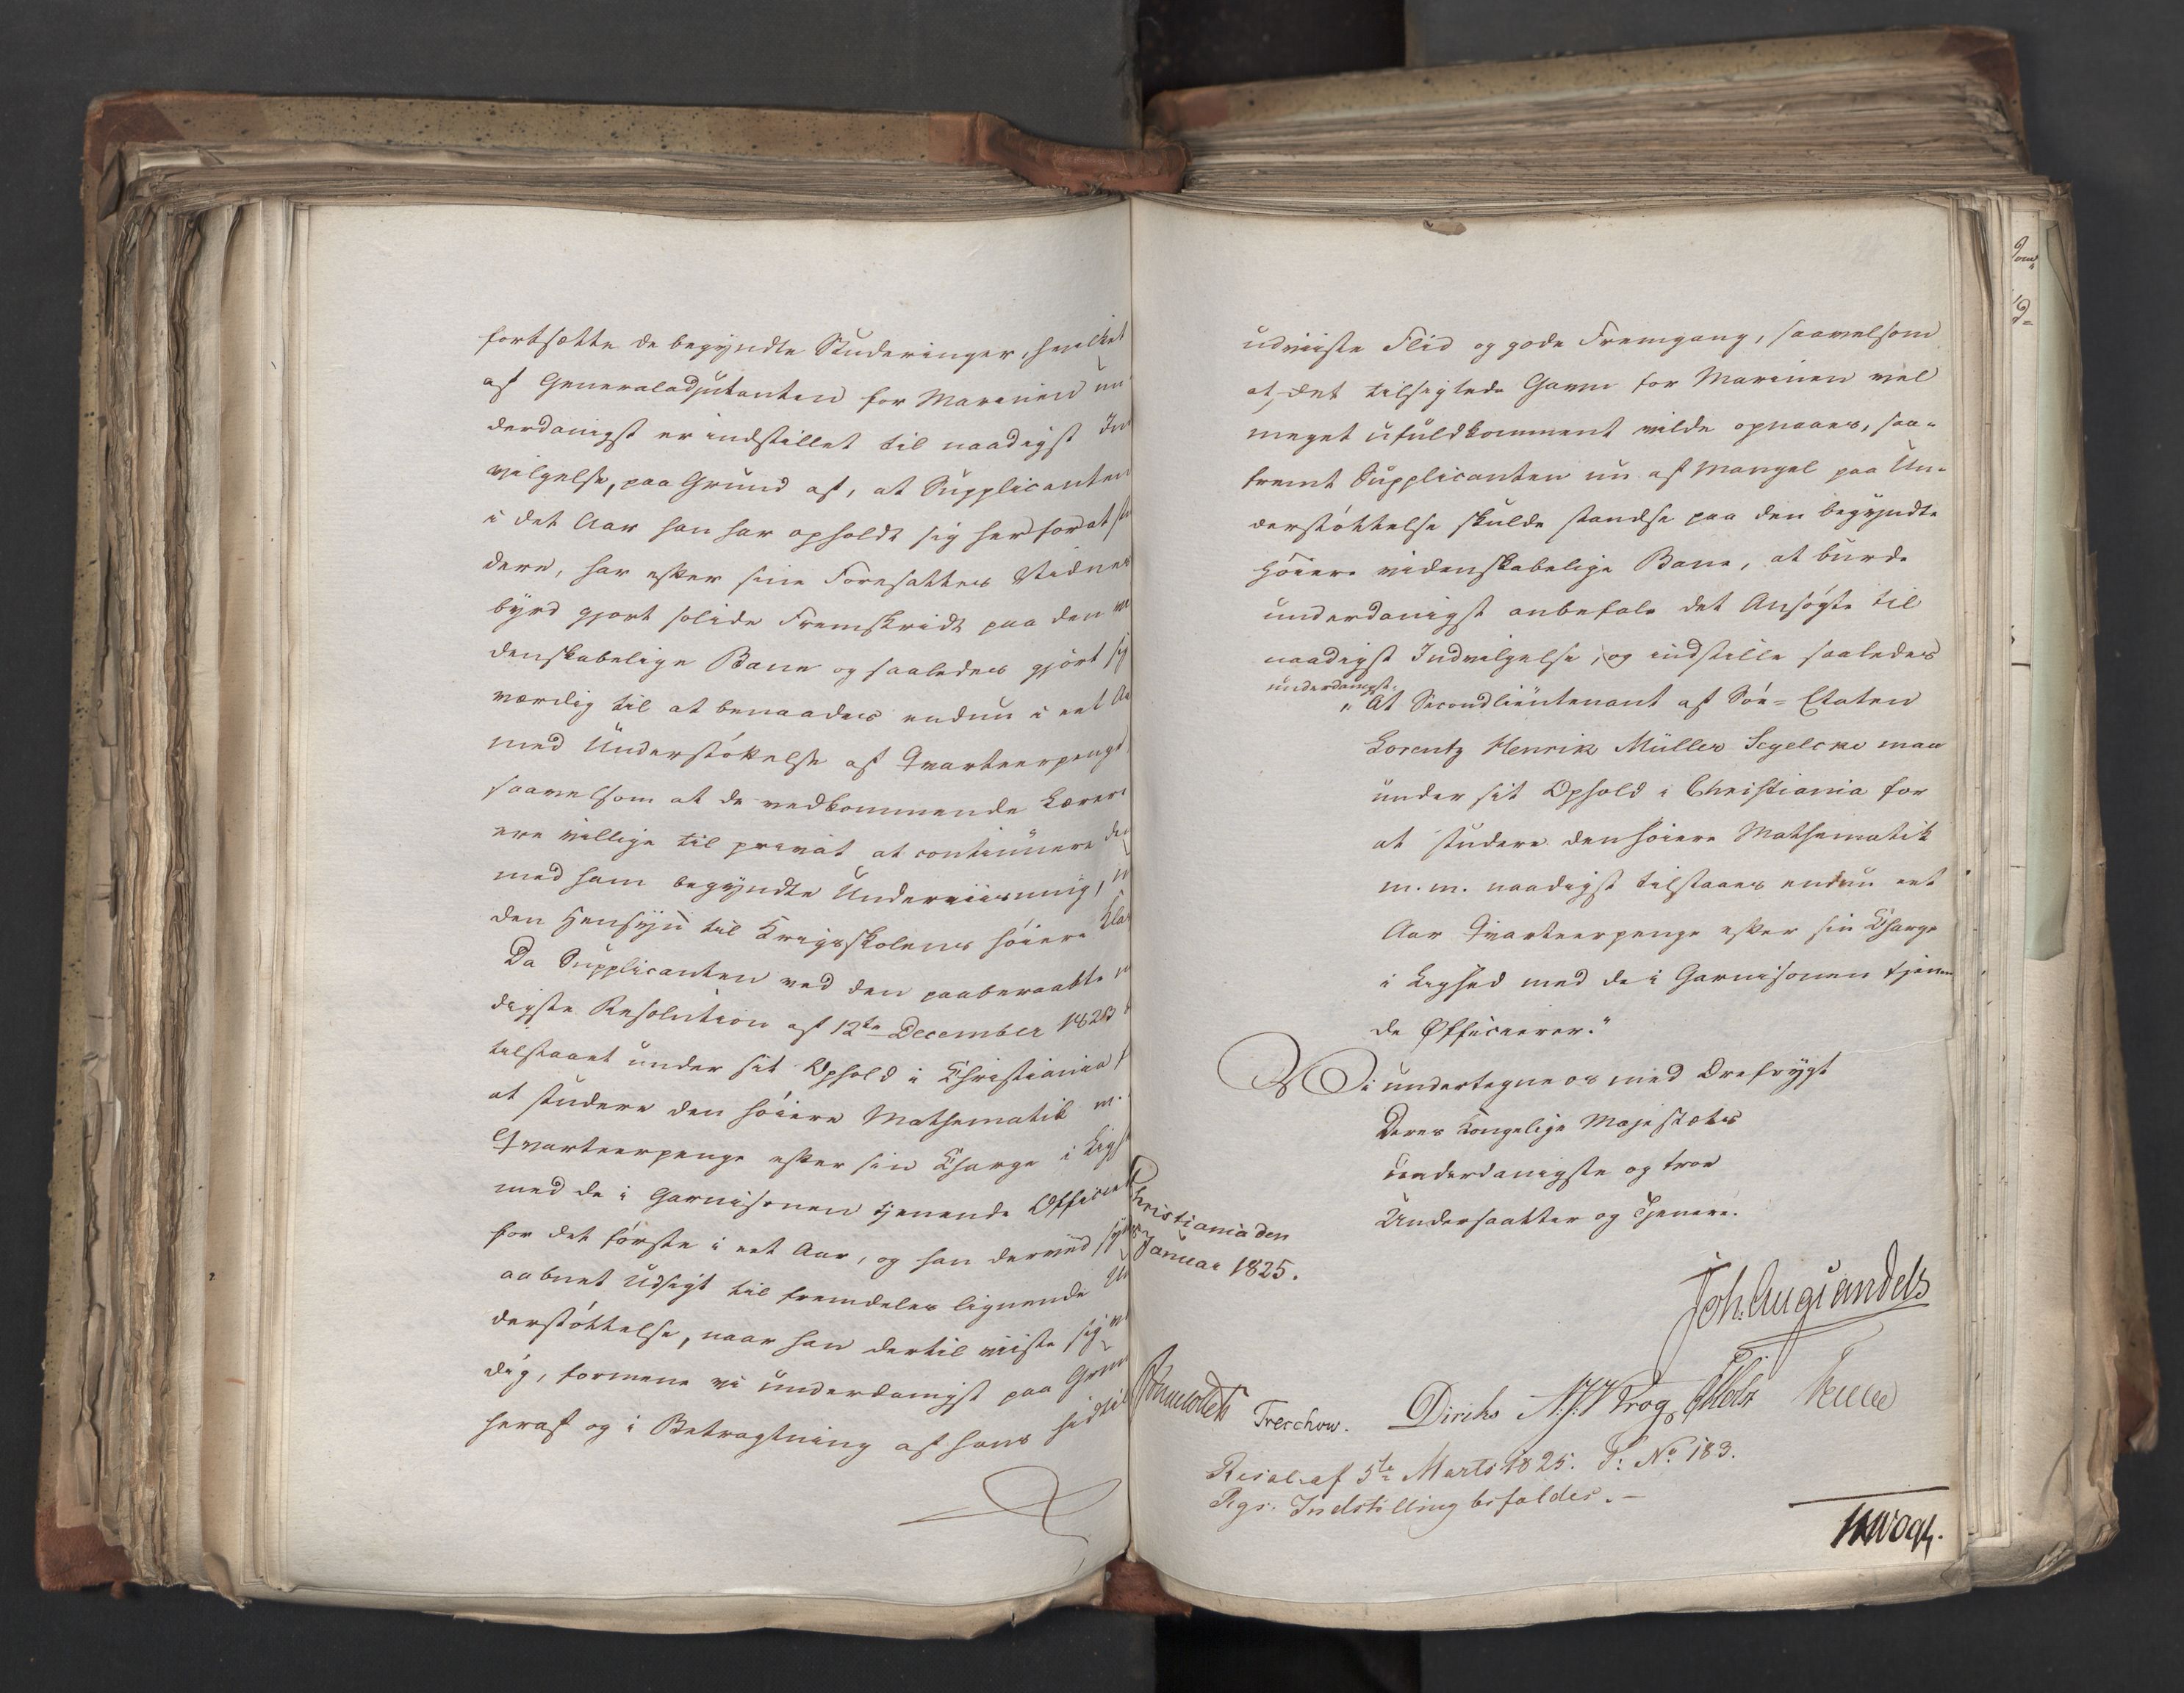 fortsætte de begyndte Studeringer, hvilket
af Generaladjutanten for Marinen un
derdanigst er indstillet til naadigst Ind
vilgelse, paa Grund af, at Supplicanten
i det Aar han har opholdt sig her for at stu
dere, har efter sine Foresattes Vidnes
byrd gjort solide Fremskridt paa den vi
denskabelige Bane og saaledes gjort sig
værdig til at benaades endnu i eet Aa
med Understøttelse af Qvarteerpenge
saavelsom at de vedkommende Lærere
ere villige til privat at continuere den
med ham begyndte Underviisning, u
den Hensyn til Krigsskolens høiere Kla
Da Supplicanten ved den paaberaabte n
digste Resolution af 12te December 1823
tilstaaet under sit Ophold i Christiania f
at studere den høiere Mathematik m.
Qvarteerpenge efter sin Charge i Ligh
med de i Garnisonen tjenende Officie
for det første i eet Aar, og han derved sy
aabnet Udsigt til fremdeles lignende Un
derstøttelse, naar han dertil viiste sig v
dig, formene vi underdanigst paa Grun
heraf og i Betragtning af hans hidtil
udviiste Flid og gode Fremgang, saavelsom
at det tilsigtede Gavn for Marinen vel
meget ufuldkomment vilde opnaaes, saa-
fremt Supplicanten nu af Mangel paa Un-
derstøttelse skulde standse paa den begyndte
høiere videnskabelige Bane, at burde
underdanigst anbefale det Ansøgte til
naadigst Indvilgelse, og indstille saaledes
underdanigst:
"At Secondlieutenant af Søe-Etaten
Lorentz Henrik Müller Segelcke maa
under sit Ophold i Christiania for
at studere den høiere Mathematik
m.m. naadigst tilstaaes endnu eet
Aar Qvarteerpenge efter sin Charge
i Lighed med de i Garnisonen tjenen
de Officierer."
Vi undertegne os med Ærefrygt
Deres Kongelige Majestæts
underdanigste og troe
Undersaatter og Tjenere.
Christiania den
Januar 1825.
Joh. Aug. Sandels
Treschow. Diriks Krog Motzfeldt
Resol. af 5te Marts 1825. P: No 183.
Rgs. Indstilling bifaldes.-
Vogt.